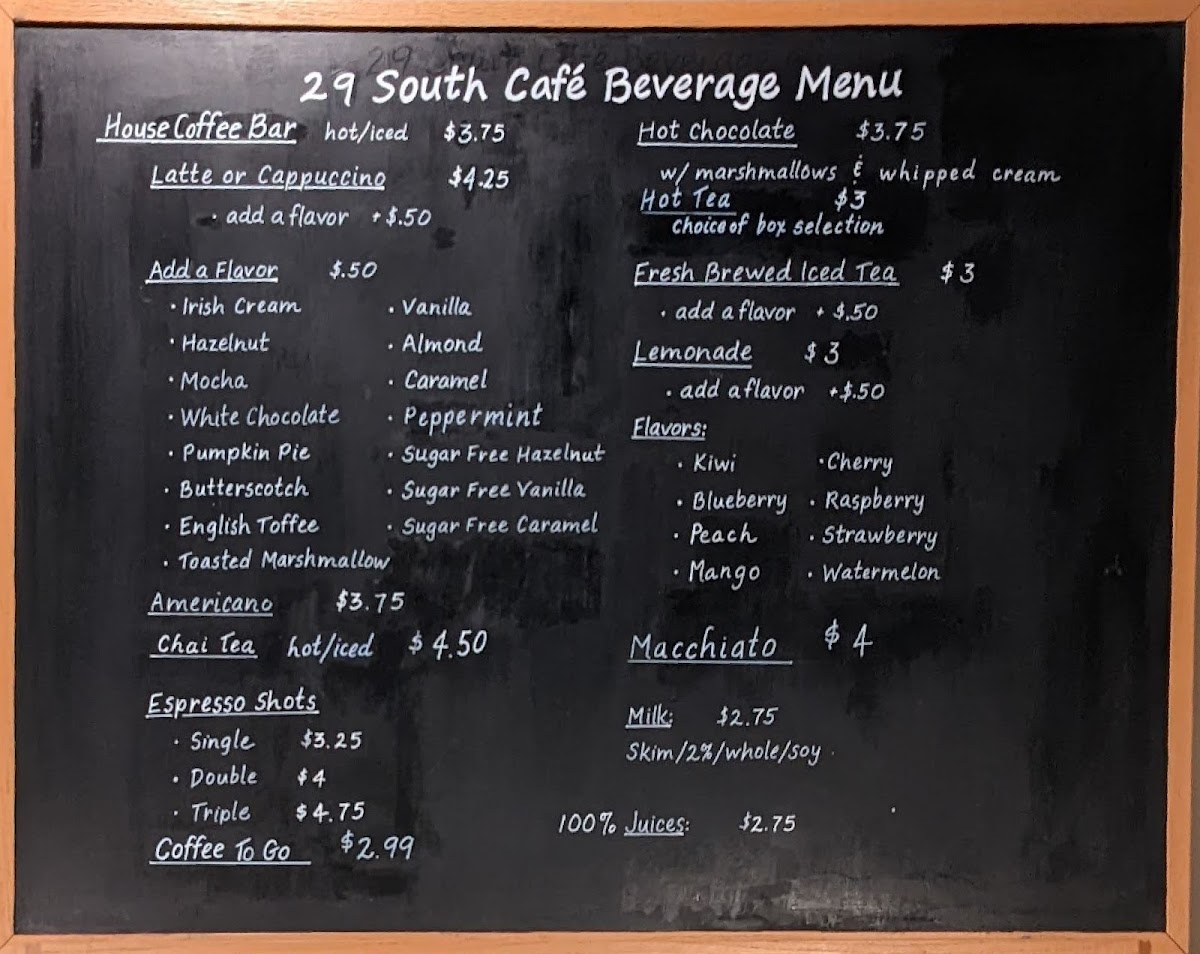 29 South Café Beverage Menu
House Coffee Bar hot/iced $3.75
Latte or Cappuccino $4.25
· add a flavor +$.50
Add a Flavor $.50
· Irish Cream · Vanilla
· Hazelnut · Almond
· Mocha · Caramel
· White Chocolate · Peppermint
· Pumpkin Pie · Sugar Free Hazelnut
· Butterscotch · Sugar Free Vanilla
· English Toffee · Sugar Free Caramel
· Toasted Marshmallow
Americano $3.75
Chai Tea hot/iced $4.50
Espresso Shots
· Single $3.25
· Double $4
· Triple $4.75
Coffee To Go $2.99
Hot Chocolate $3.75
w/ marshmallows & whipped cream
Hot Tea $3
choice of box selection
Fresh Brewed Iced Tea $3
· add a flavor + $.50
Lemonade $3
· add a flavor +$.50
Flavors:
· Kiwi · Cherry
· Blueberry · Raspberry
· Peach · Strawberry
· Mango · Watermelon
Macchiato $4
Milk: $2.75
Skim/2%/whole/soy
100% Juices: $2.75